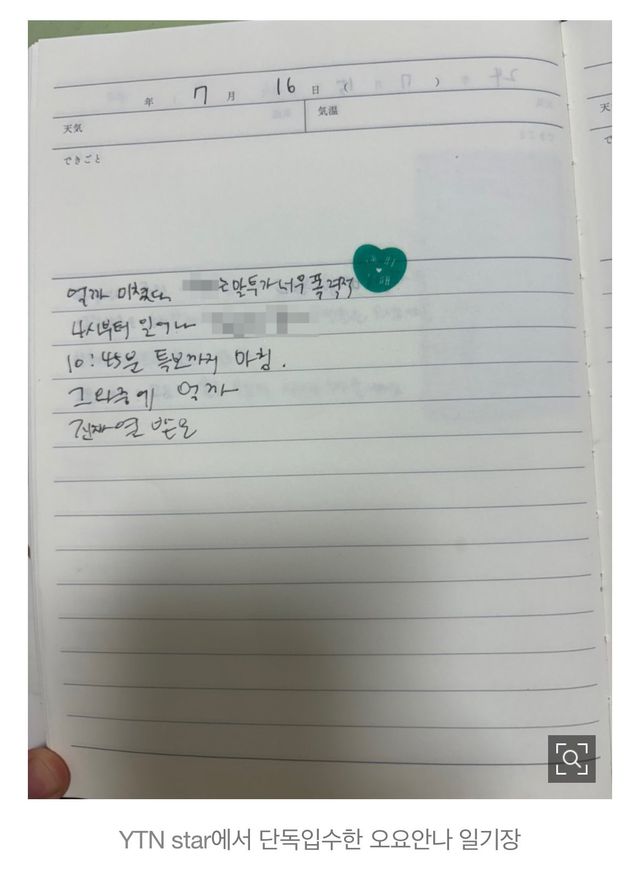 年 7 月 16 日 ( )
天気 気温
できごと
억까 미쳤다 는 말투가 너무 폭력적
4시부터 일어나
10:45분 특보까지 마침.
그 와중에 억까
진짜 열 받음
YTN star에서 단독입수한 오요안나 일기장